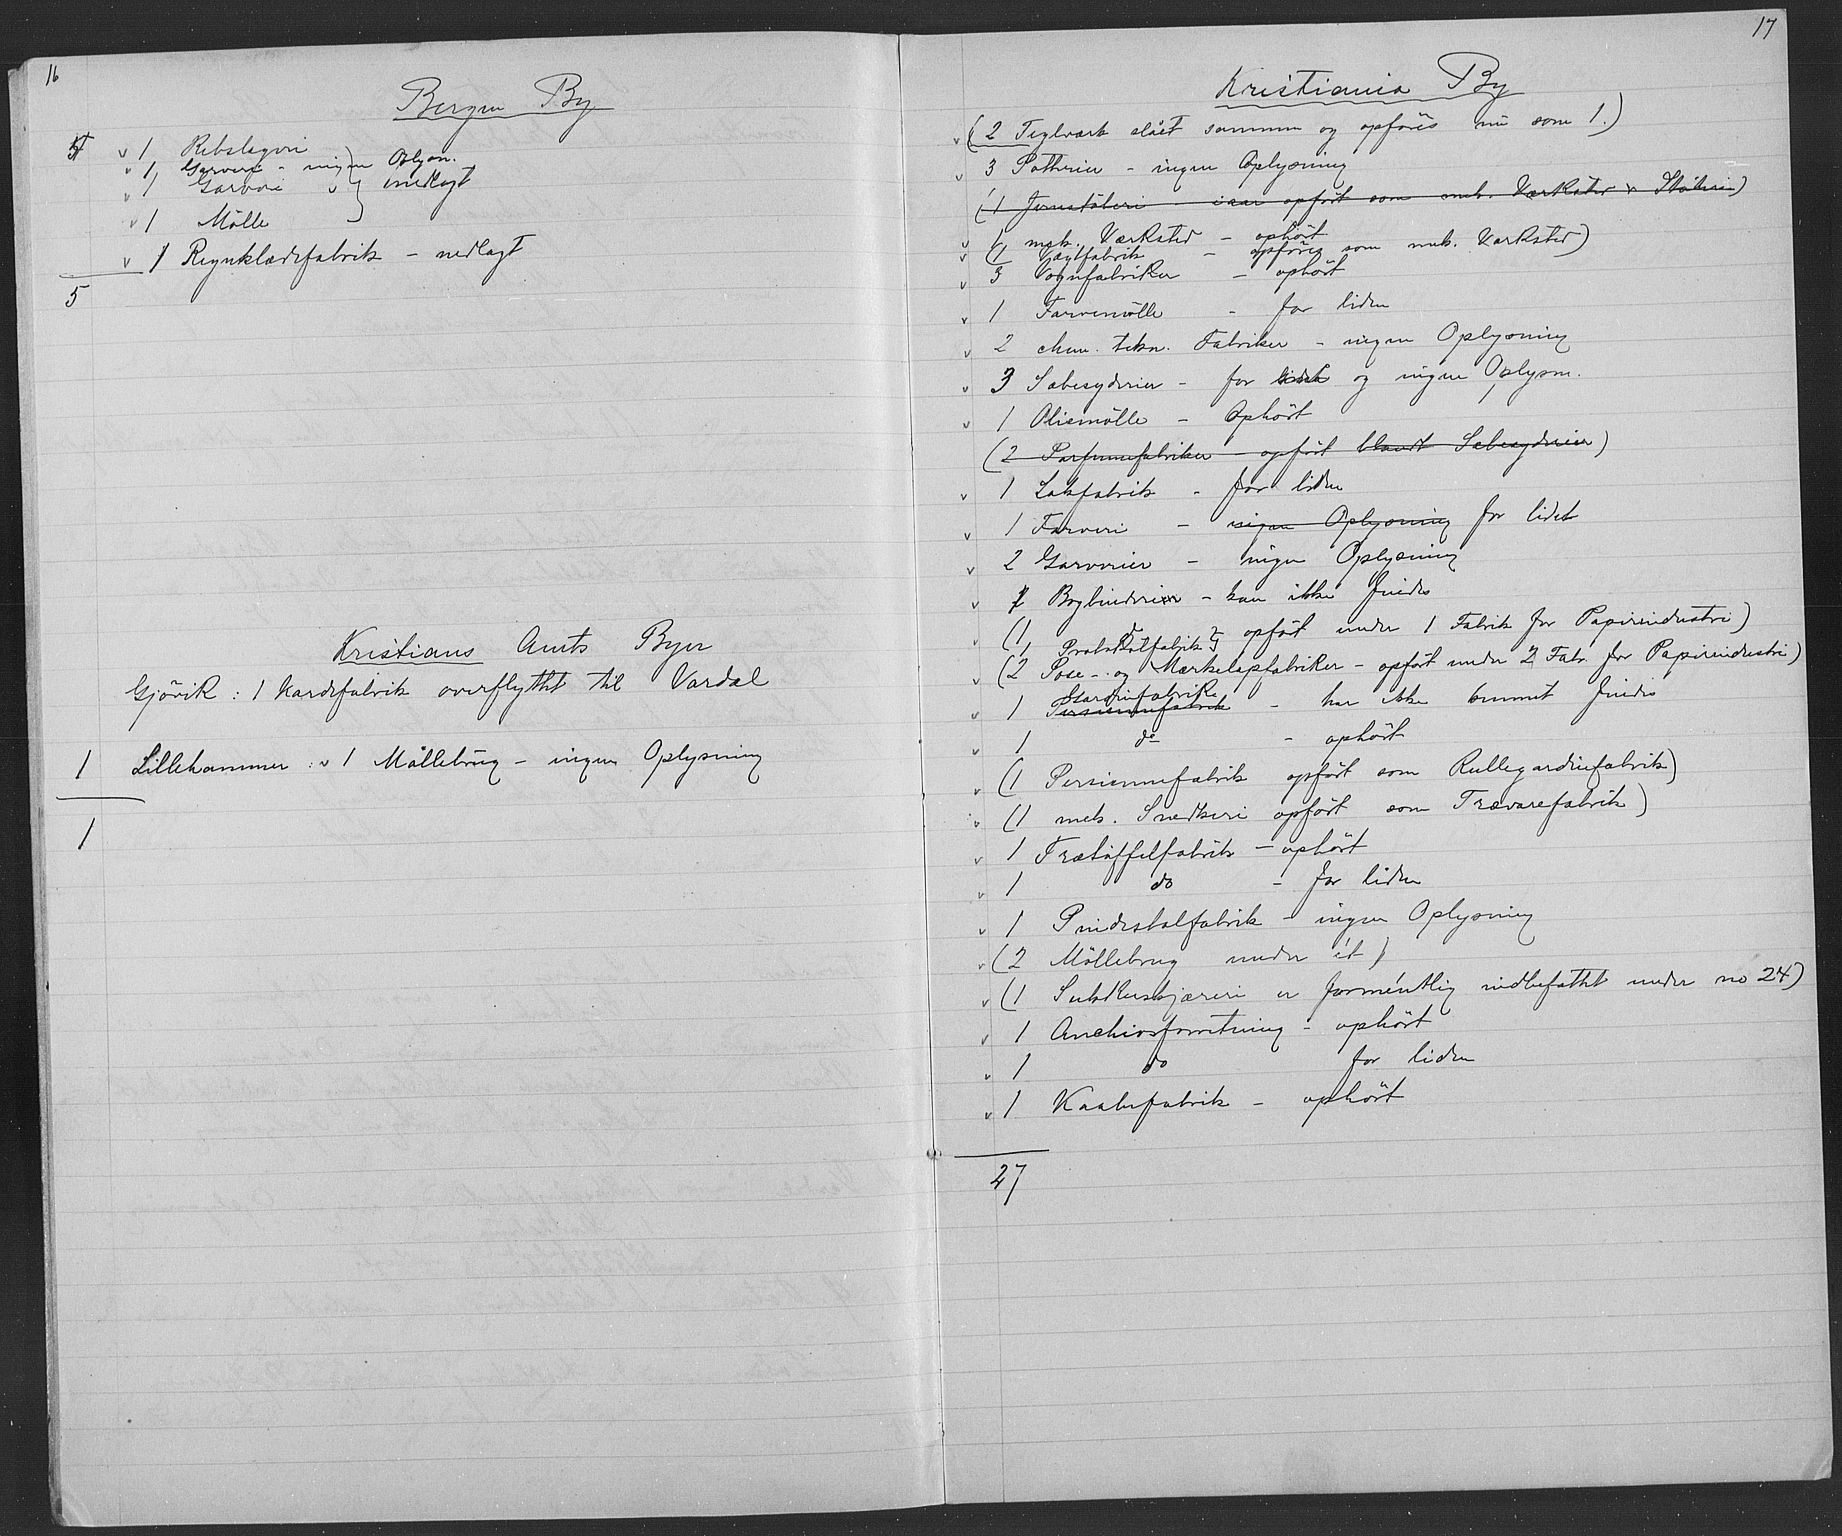 16
Bergen By
v 1 Rebslageri
v 1 Garveri - ingen Oplysn.
v 1 Garveri nedlagt
v 1 Mölle
v 1 Regnklædefabrik - nedlagt
5
Kristians Amts Byer
Gjövik : 1 Kardefabrik overflyttet til Vardal
1 Lillehammer : v 1 Möllebrug - ingen Oplysning
1
17
Kristiania By
v (2 Teglværk slået sammen og opföres nu som 1.)
v 3 Potterier - ingen Oplysning
(1 Jernstöberi - opfört som mek. Værksted & Stöberi)
v 1 mek. Værksted - ophört
v (1 Vægtfabrik - opföres som mek. Værksted)
v 3 Vognfabriker - ophört
v 1 Farvemölle - for liden
v 2 chem. tekn. Fabriker - ingen Oplysning
v 3 Sæbesyderier - for lidet og ingen Oplysn.
v 1 Oliemölle - Ophört
(2 Parfumefabriker - opfört blandt Sæbesyderier)
v 1 Lakfabrik - for liden
v 1 Farveri - ingen Oplysning for lidet
v 2 Garverier - ingen Oplysning
v 1 Bogbinderier - kan ikke findes
(1 do opfört under 1 Fabrik for Papirindustri)
v (2 Pose- og Mærkelapfabriker - opfört under 2 Fabr. for Papirindustri)
v 1 Persiennefabrik - har ikke kunnet findes
v 1 do - ophört
v (1 Persiennefabrik opfört som Rullegardinfabrik)
v (1 mek. Snedkeri opfört som Trævarefabrik)
v 1 Trætöffelfabrik - ophört
v 1 do - for liden
v 1 Pindestolfabrik - ingen Oplysning
v (2 Möllebrug under ét)
v (1 Sukkerskjæreri er formentlig indbefattet under no 24)
v 1 Anchiosforretning - ophört
v 1 do for liden
v 1 Kaabefabrik - ophört
27